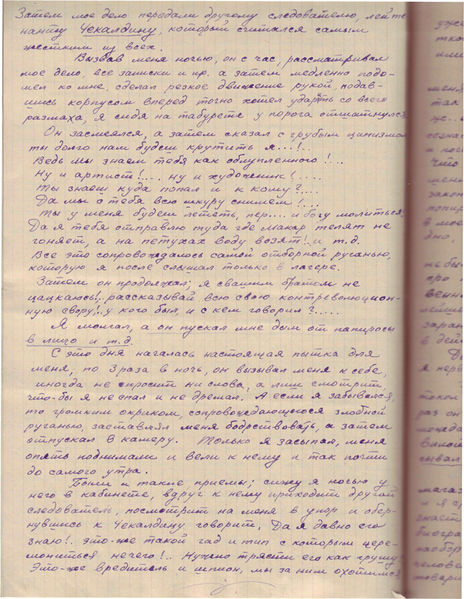 Затем мое дело передали другому следователю, лейте
нанту Чекалдину, который считался самым
жестким из всех.
Вызвав меня ночью, он с час, рассматривал
мое дело, все записки и пр. а затем медленно подо-
шел ко мне, сделал резкое движение рукой подав-
шись корпусом вперед точно хотел ударить со всего
размаха, я сидя на табурете у порога отшатнулся
Он засмеялся, а затем сказал с грубым цинизмом
ты долго нам будеш крутить я...!..
Ведь мы знаем тебя как облупленного!...
Ну и артист!... ну и художник!....
Ты знаеш куда попал и к кому?....
Да мы с тебя всю шкуру снимем!...
ты у меня будеш лететь, пер... и богу молиться,
Да я тебя отправлю туда где Макар телят не
гоняет, а на петухах воду возят! и т.д.
Все это сопровождалось самой отборной руганью,
которую я после слышал только в лагере.
Затем он продолжал; я с вашим братом не
цацкаюсь!, рассказывай всю свою контрреволюцион-
ную свору!, у кого был, и с кем говорил?.....
Я молчал, а он пускал мне дым от папиросы
в лицо и т.д.
С это дня началась настоящая пытка для
меня, по 3 раза в ночь, он вызывал меня к себе,
иногда не спросит ни слова, а лиш смотрит,
что-бы я не спал и не дремал. А если я забывался,
то громким окриком, сопровождающегося злобной
руганью, заставлял меня бодрствовать, а затем
отпускал в камеру. Только я засыпал, меня
опять поднимали и вели к нему и так почти
до самого утра.
Были и такие приемы; сижу я ночью у
него в кабинете, вдруг к нему приходит другой
следователь, посмотрит на меня в упор и обер-
нувшись к Чекалдину говорит. Да я давно его
знаю!. это-же такой гад и тип с которым цере-
мониться нечего!.. Нужно трясти его как грушу
Это-же вредитель и шпион, мы за ним охотимся